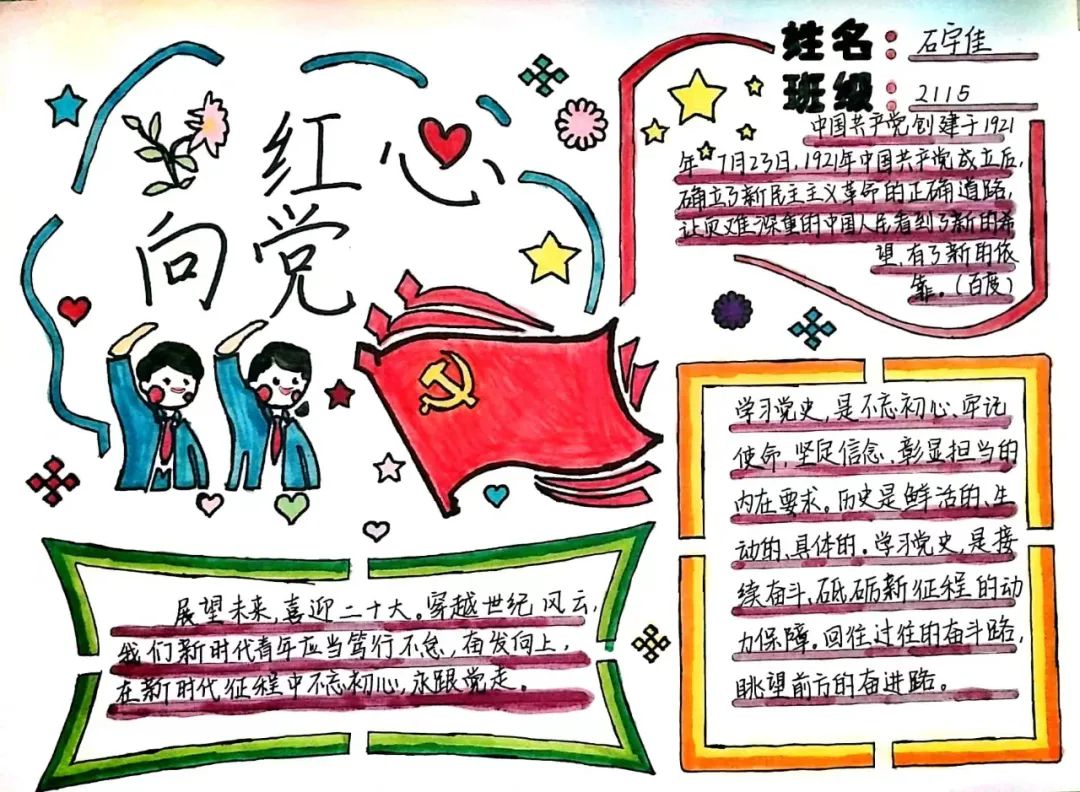 红心
向党
姓名：石宇佳
班级：2115
中国共产党创建于1921
年7月23日，1921年中国共产党成立后，
确立了新民主主义革命的正确道路，
让灾难深重的中国人民看到了新的希
望，有了新的依
靠。（百度）
学习党史，是不忘初心、牢记
使命，坚定信念、彰显担当的
内在要求。历史是鲜活的、生
动的、具体的。学习党史，是接
续奋斗、砥砺新征程的动
力保障。回往过往的奋斗路，
眺望前方的奋进路。
展望未来，喜迎二十大。穿越世纪风云，
我们新时代青年应当笃行不怠，奋发向上，
在新时代征程中不忘初心，永跟党走。